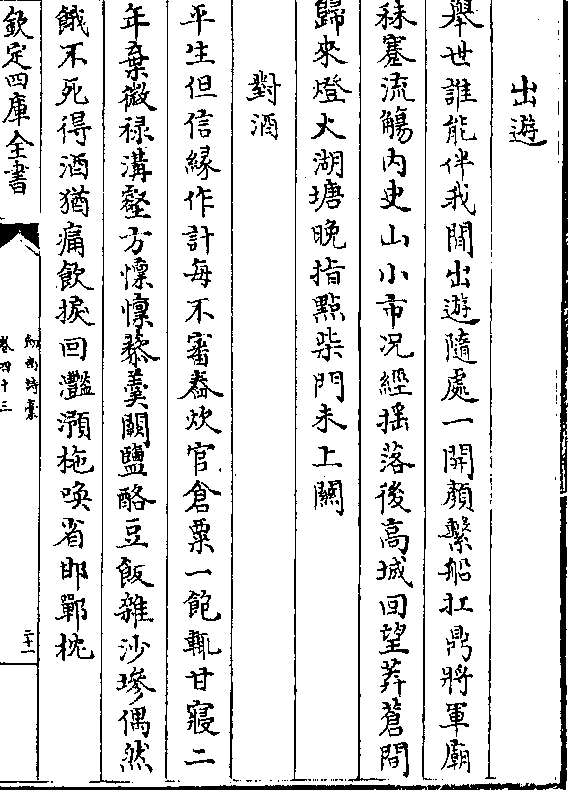 出遊
舉世誰能伴我閒出遊隨處一開顔繫船扛鼎將軍廟
秣蹇流觴内史山小市况經揺落後高城回望莽蒼間
歸來燈火湖塘晚指點柴門未上關
對酒
平生但信緣作計每不審舂炊官倉粟一飽輒甘寢二
年棄微禄溝壑方懔懔藜羮闕鹽酪豆飯雜沙墋偶然
餓不死得酒猶痛飲捩回灔澦柂喚省邯鄲枕
欽定四庫全書
劍南詩稾
卷四十三
二十一